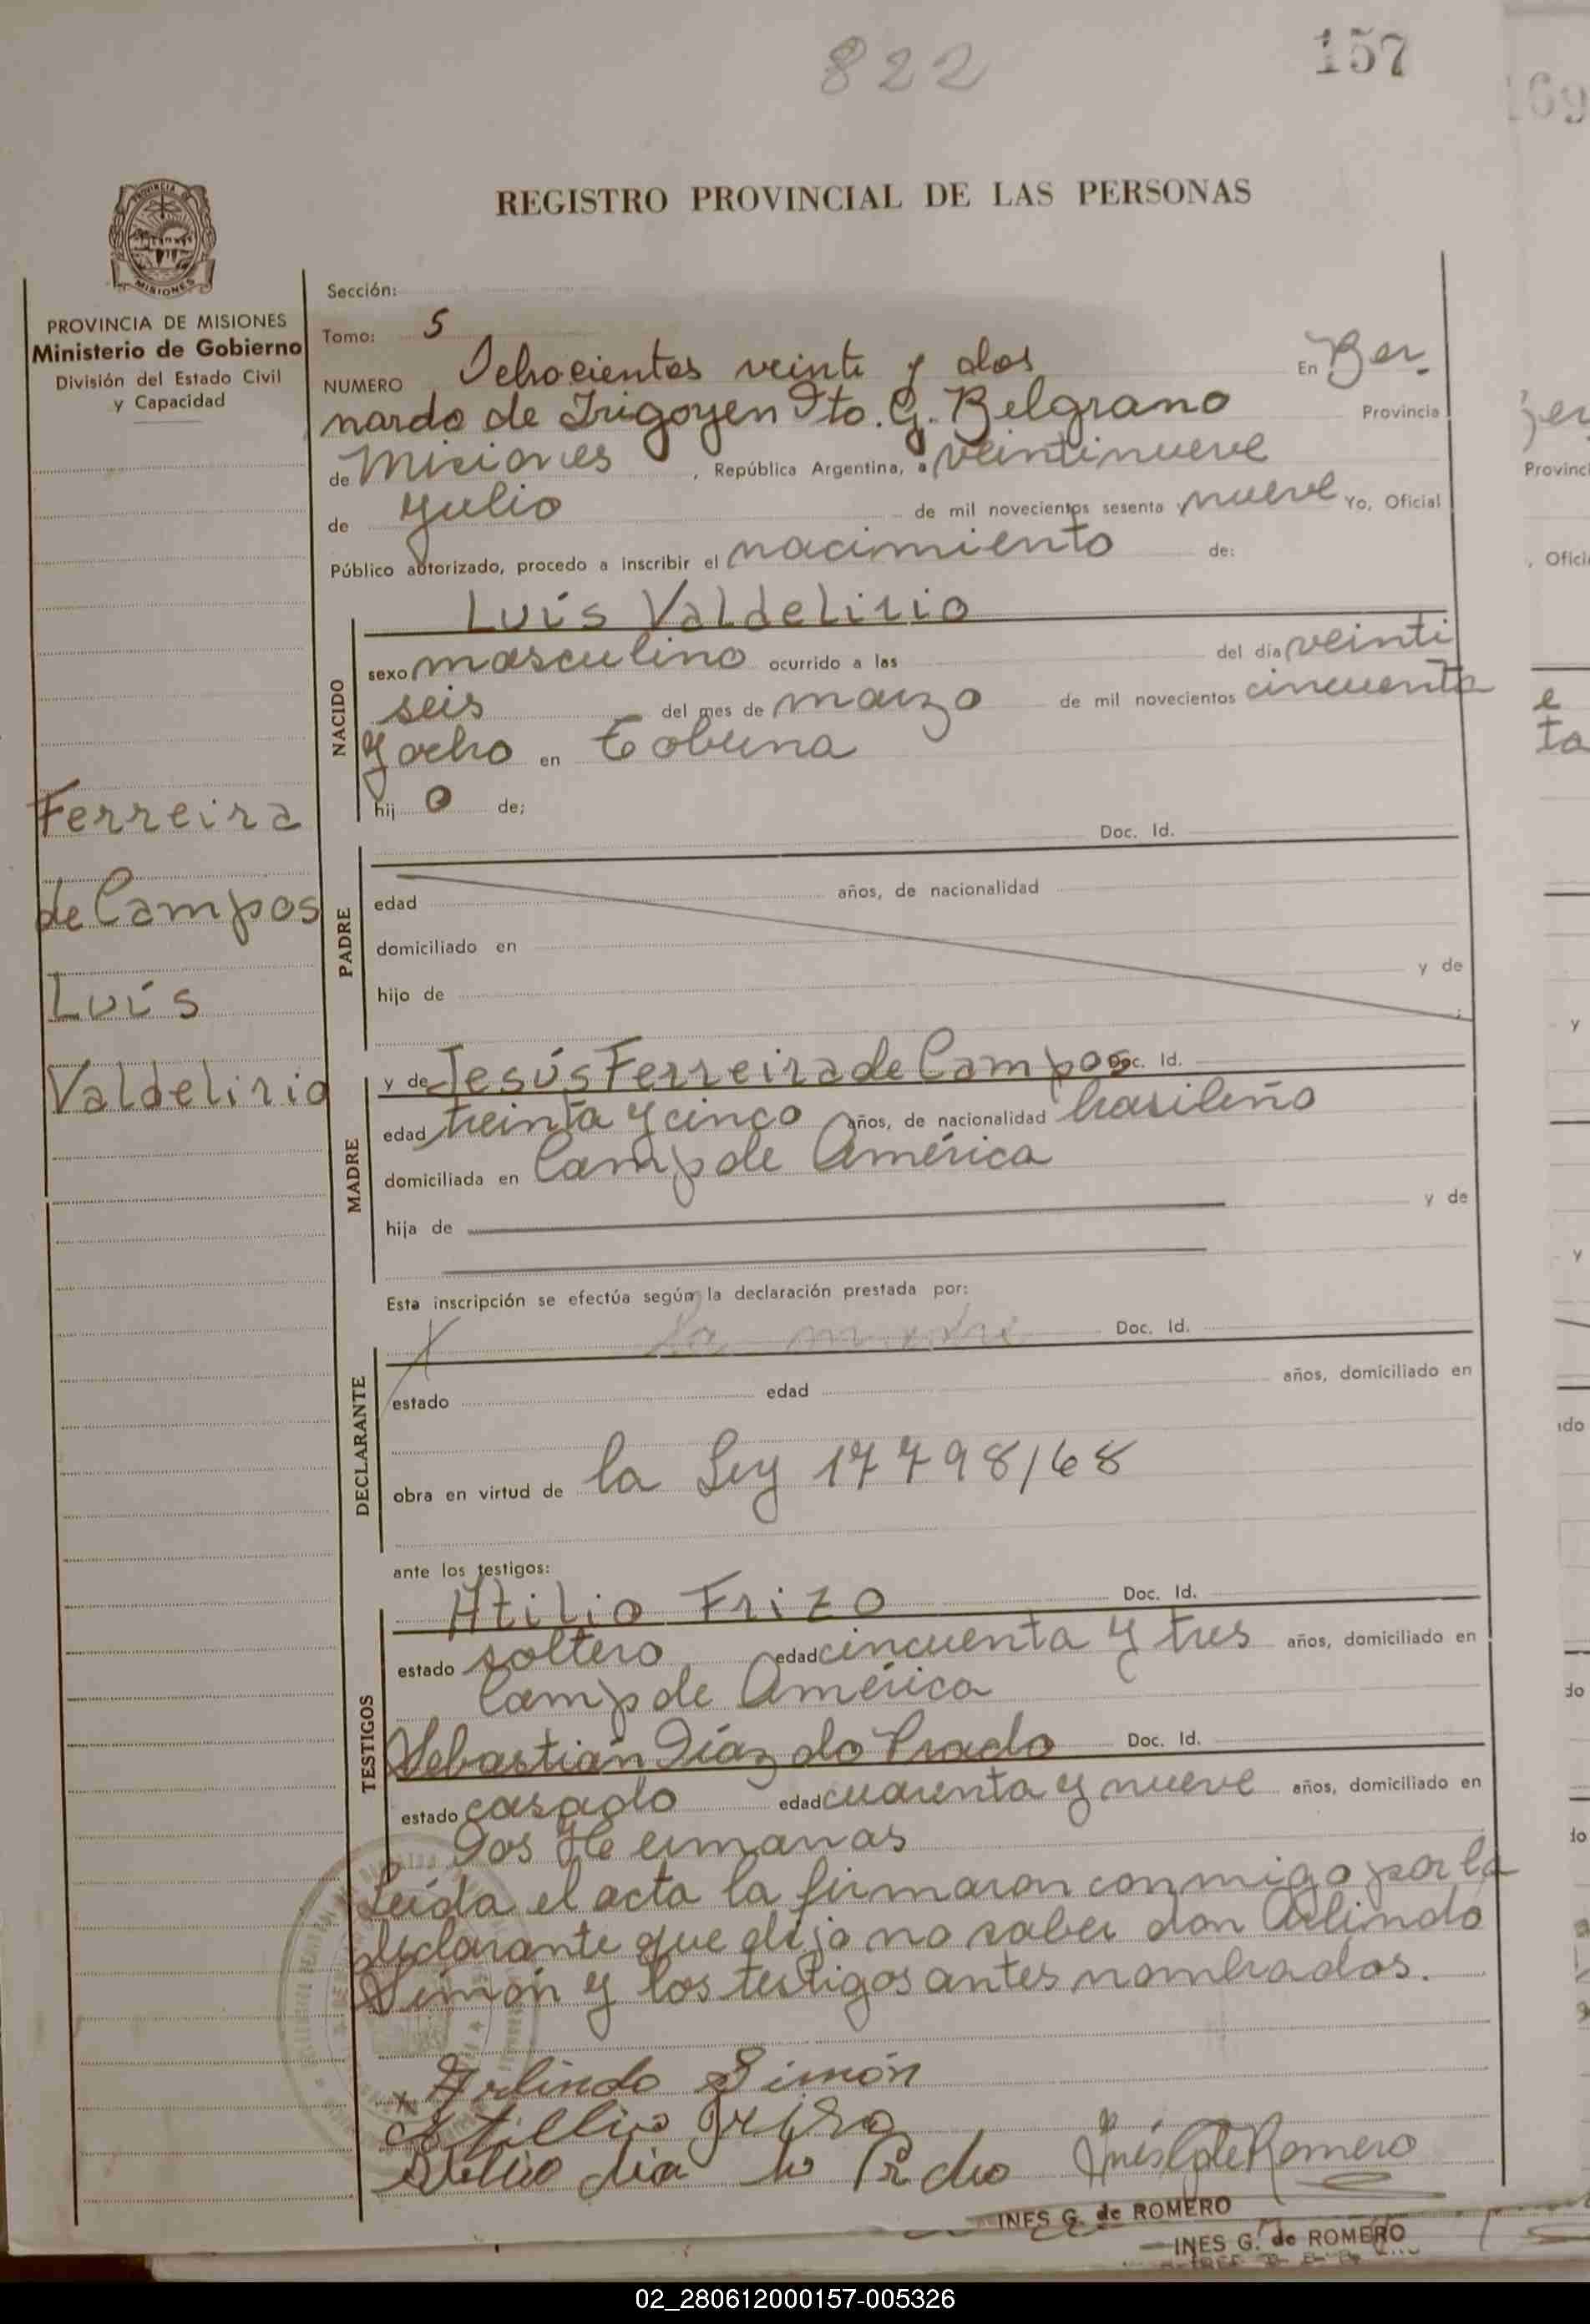 822
157
169
REGISTRO PROVINCIAL DE LAS PERSONAS
MISIONES
PROVINCIA DE MISIONES
Ministerio de Gobierno
División del Estado Civil
y Capacidad
Ferreira
de Campos
Luís
Valdelirio
Sección:
Tomo: 5
NUMERO Ochocientos veinte y dos En Ber
nardo de Irigoyen Dto. G. Belgrano Provincia
de Misiones, República Argentina, a veintinueve
de Julio de mil novecientos sesenta nueve Yo, Oficial
Público autorizado, procedo a inscribir el nacimiento de:
NACIDO
Luís Valdelirio
sexo masculino ocurrido a las del día veinti
seis del mes de marzo de mil novecientos cincuenta
y ocho en Tobuna
hij o de;
PADRE
Doc. Id.
edad años, de nacionalidad
domiciliado en
hijo de y de
MADRE
y de Jesús Ferreira de Campos Doc. Id.
edad treinta y cinco años, de nacionalidad brasileño
domiciliada en Camp de América
hija de y de
Esta inscripción se efectúa según la declaración prestada por:
DECLARANTE
la madre Doc. Id.
estado edad años, domiciliado en
obra en virtud de la Ley 17798/68
ante los testigos:
TESTIGOS
Atilio Frizo Doc. Id.
estado soltero edad cincuenta y tres años, domiciliado en
Camp de América
Sebastián Díaz do Prado Doc. Id.
estado casado edad cuarenta y nueve años, domiciliado en
Dos Hermanas
Leída el acta la firmaron conmigo por la
declarante que dijo no saber don Arlindo
Simón y los testigos antes nombrados.
Arlindo Simón
INES G. de ROMERO
INES G. de ROMERO
02_280612000157-005326